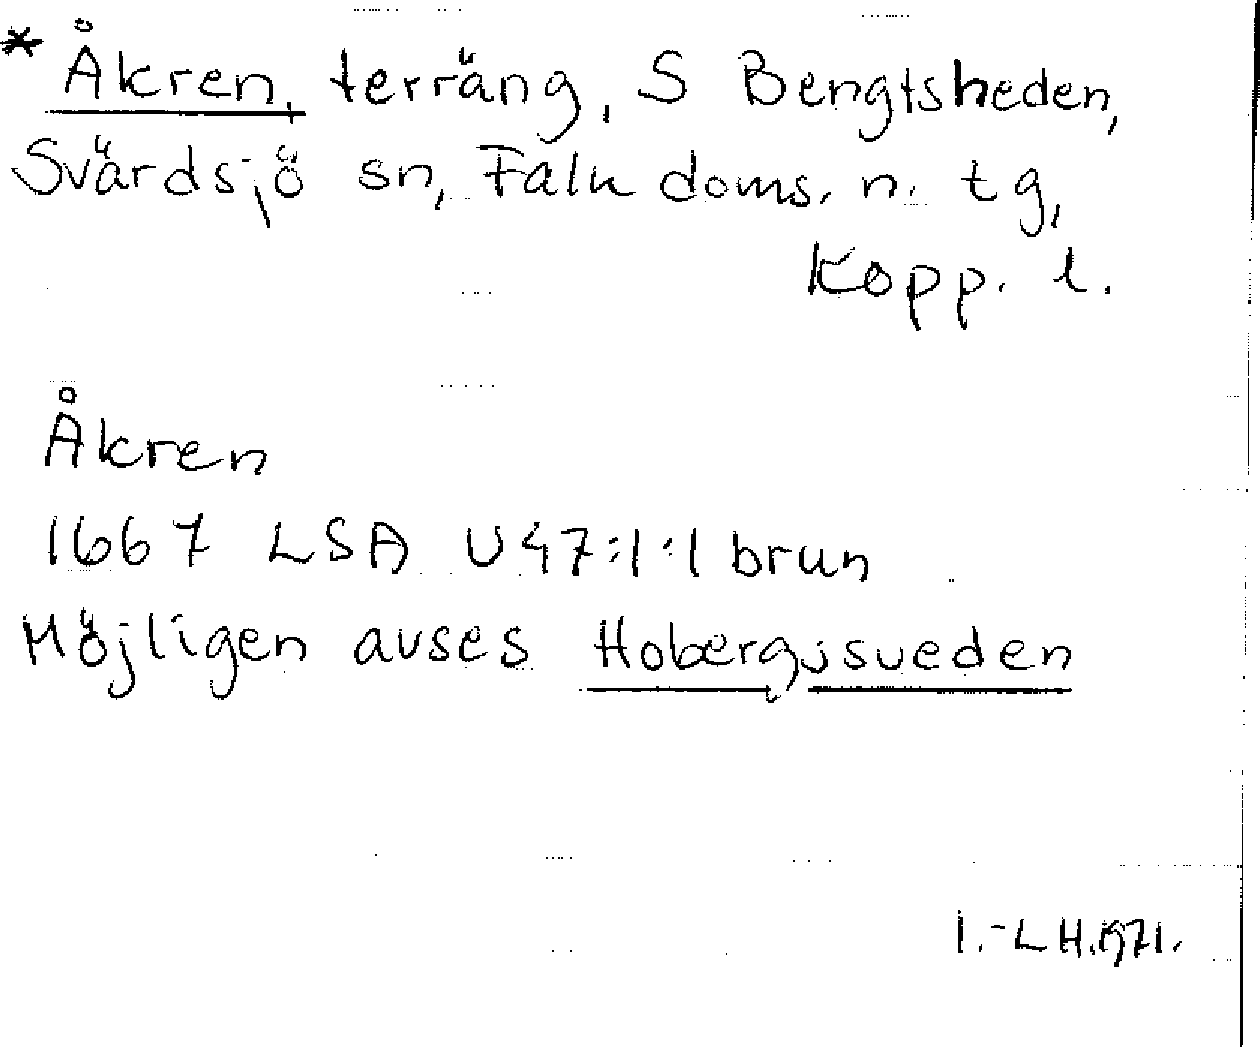 * Åkren, terräng, S Bengtsheden,
Svärdsjö sn, Falu doms. n. tg,
Kopp. l.
Åkren
1667 LSA U47:1:1 brun
Möjligen avses Hobergssveden
I.-L H.1971.